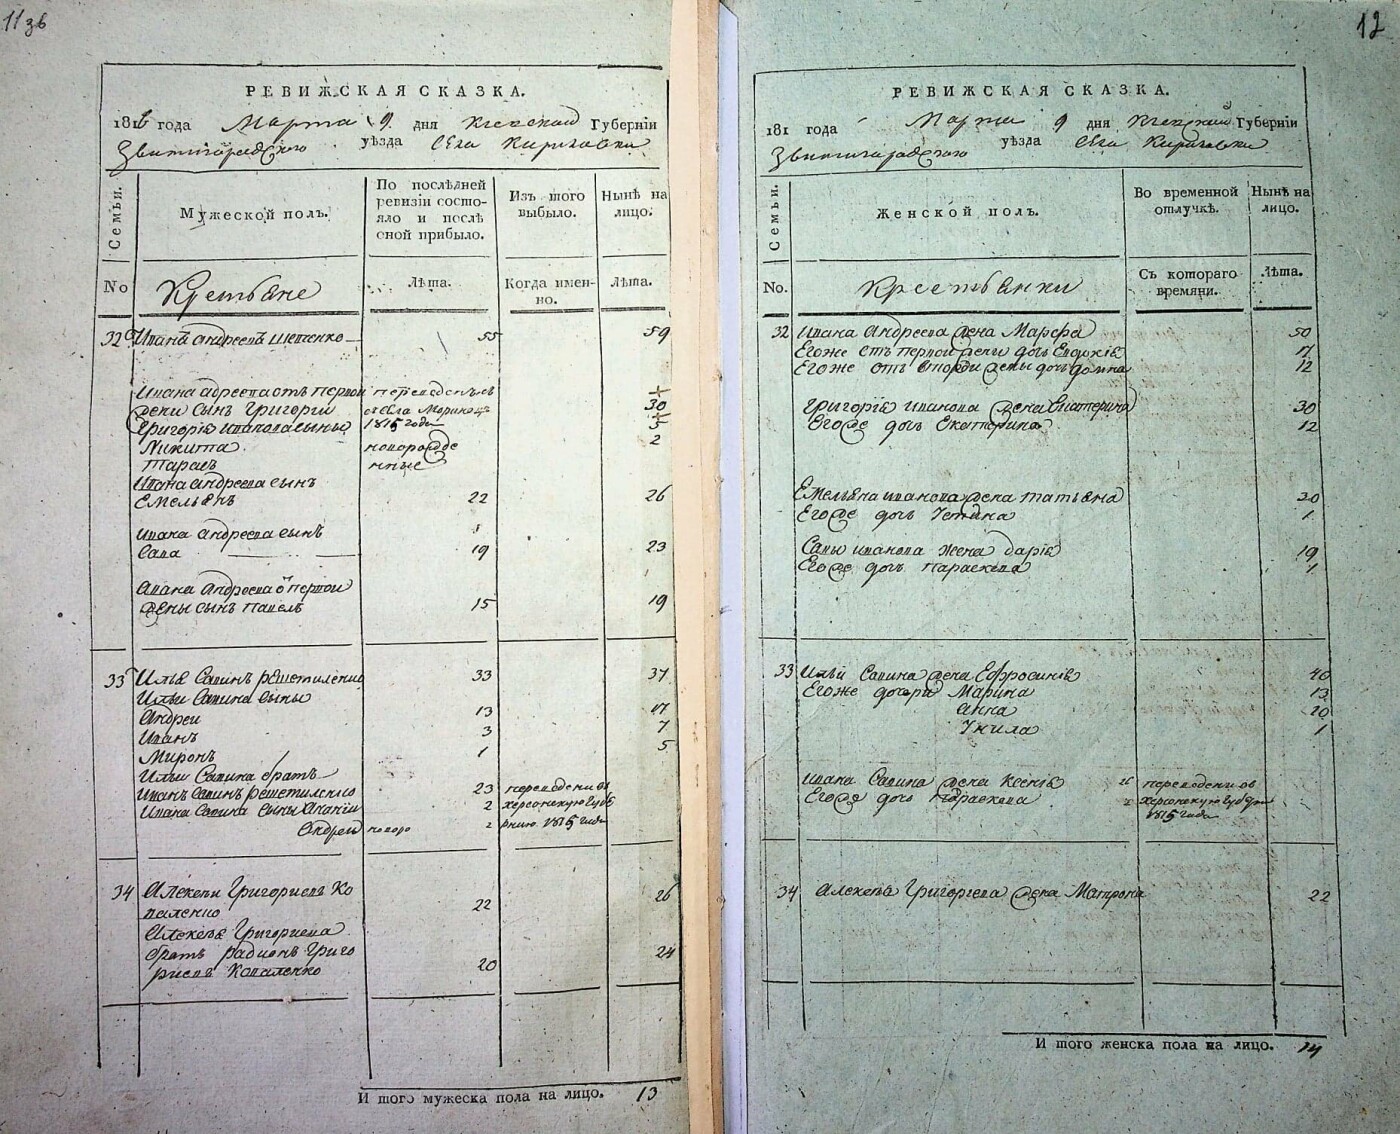 11 зв
РЕВИЖСКАЯ СКАЗКА.
1816 года Марта 9 дня Киевской Губернїи
Звенигородского уѣзда Села Кириловки
Семьи.
Мужеской полъ.
По послѣдней ревизїи состояло и послѣ оной прибыло.
Изъ того выбыло.
Нынѣ на лицо.
No
Крестьяне
Лѣта.
Когда именно.
Лѣта.
32 Иванъ Андреевъ Шевченко 55 59
Ивана Адреева отъ первой переведенъ съ
жены сынъ Григорїй села Моринецъ 30
Григорїя Иванова сыны 1815 года 5
Никита новорожде 2
Тарасъ нные
Ивана Андреева сынъ
Емельянъ 22 26
Ивана Андреева сынъ
Сава 19 23
Ивана Андреева ѿ первой
жены сынъ Павелъ 15 19
33 Илья Савинъ Решетиленко 33 37
Ильи Савина сыны
Андреи 13 17
Иванъ 3 7
Миронъ 1 5
Ильи Савина братъ
Иванъ Савинъ Решетиленко 23 переведены въ
Ивана Савина сыны 2 херсонскую губе
Андреи новоро 2 рнию 1815 года
34 Алексѣи Григориевъ Ко
валенко 22 26
Алексѣя Григориева
братъ Радионъ Григо 24
риевъ Коваленко 20
И того мужеска пола на лицо. 13
12
РЕВИЖСКАЯ СКАЗКА.
181 года Марта 9 дня Киевской Губернїи
Звенигородского уѣзда Села Кириловки
Семьи.
Женской полъ.
Во временной отлучкѣ.
Нынѣ на лицо.
No.
Крестьянки
Съ котораго времяни.
Лѣта.
32 Ивана Андреева жена Марфа 50
Егоже отъ первой жены дочь 17
Егоже отъ второй жены дочь Домна 12
Григорїя Иванова жена Екатерина 30
Егоже дочь Екатерина 12
Емельяна Иванова жена Татьяна 20
Егоже дочь Устина 1
Савы Иванова жена Дарїя 19
Егоже дочь Параскева 1
33 Ильи Савина жена Ефросинїя 40
Егоже дочери Марина 13
Анна 20
Унила 1
Ивана Савина жена Ксенїя 26 переведены въ
Егоже дочь Параскева 2 херсонскую губер
1815 года
34 Алексѣя Григориева жена Матрона 22
И того женска пола на лицо. 14